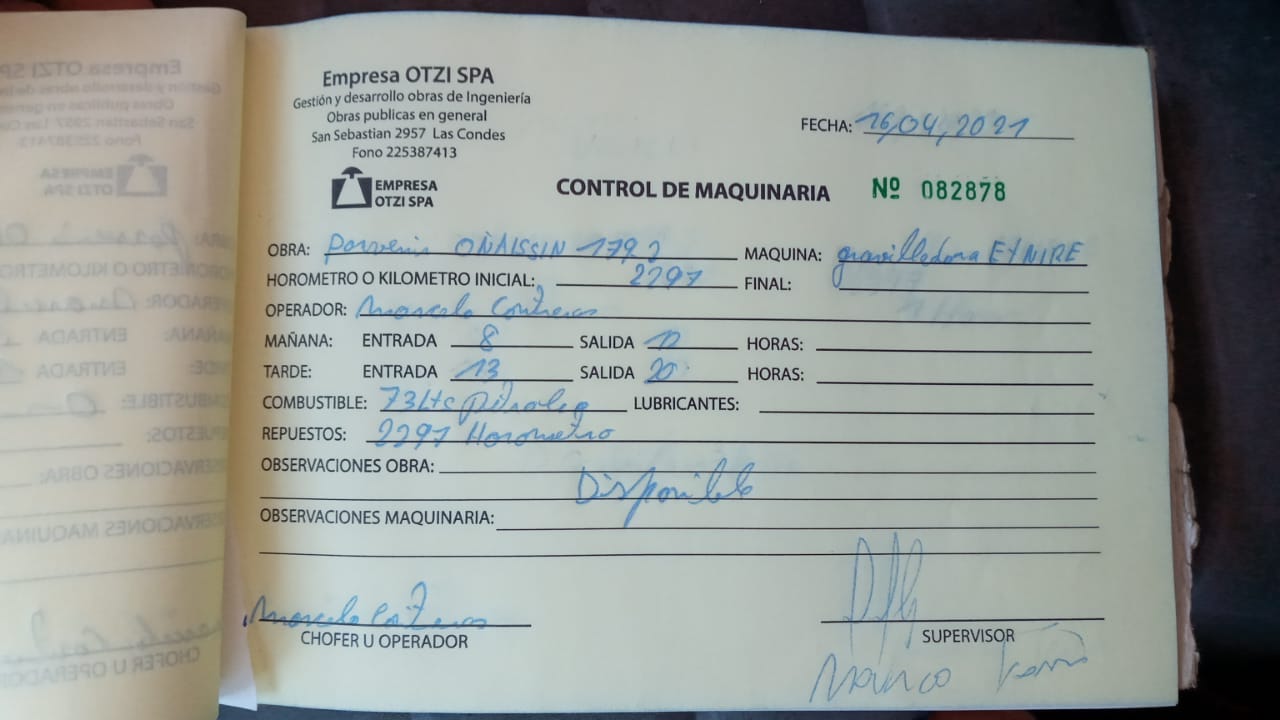 Empresa OTZI SPA
Gestión y desarrollo obras de Ingeniería
Obras publicas en general
San Sebastian 2957 Las Condes
Fono 225387413
FECHA: 16,04,2021
EMPRESA
OTZI SPA
CONTROL DE MAQUINARIA Nº 082878
OBRA: Porvenir OÑAISSIN 1792 MAQUINA: gravilladora EYNIRE
HOROMETRO O KILOMETRO INICIAL: 2297 FINAL:
OPERADOR: Marcelo Contreras
MAÑANA: ENTRADA 8 SALIDA 12 HORAS:
TARDE: ENTRADA 13 SALIDA 20 HORAS:
COMBUSTIBLE: 73Lts Petroleo LUBRICANTES:
REPUESTOS: 2297 Horometro
OBSERVACIONES OBRA:
Disponible
OBSERVACIONES MAQUINARIA:
Marcelo Contreras
CHOFER U OPERADOR
SUPERVISOR
Marco